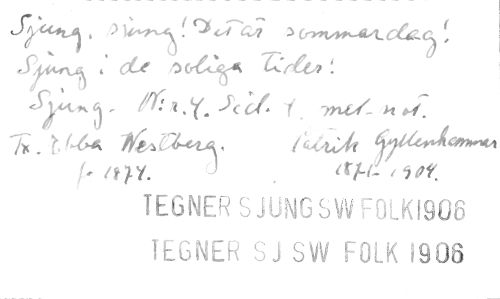 Sjung, sjung! Det är sommardag!
Sjung i de soliga tider!
Sjung. N:r 4. Sid. 4. mel-not.
Tx. Ebba Westberg. Patrik Gyllenhammar
f. 1874. 1871-1904.
TEGNER SJUNGSW FOLK1906
TEGNER SJ SW FOLK 1906